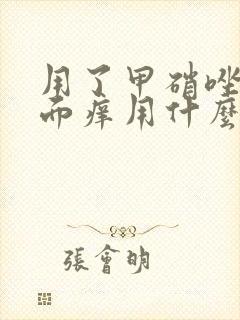 用了甲硝唑
而痒用什麼
張會明